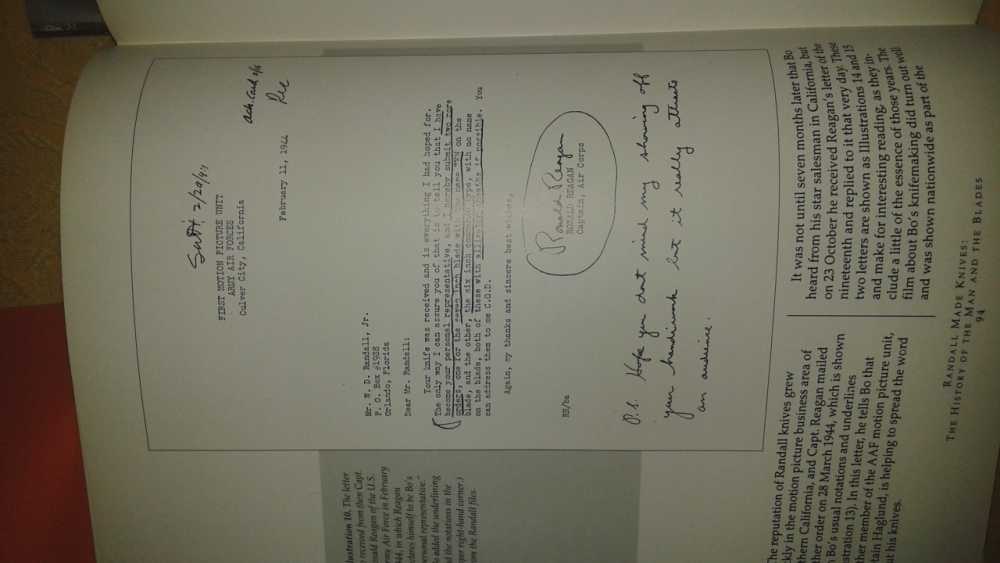 Sent 2/29/44
Ack. Card 2/16
Rec
FIRST MOTION PICTURE UNIT
ARMY AIR FORCES
Culver City, California
February 11, 1944
Mr. W. D. Randall, Jr.
P. O. Box #1988
Orlando, Florida
Dear Mr. Randall:
Your knife was received and is everything I had hoped for.
The only way I can assure you of that is to tell you that I have
become your personal representative, and I hereby submit two more
orders, one for the seven inch blade with the name on the
blade, and the other, the six inch type, with no name
on the blade, both of these with if possible. You
can address them to me C.O.D.
Again, my thanks and sincere best wishes,
Ronald Reagan
RONALD REAGAN
Captain, Air Corps
P.S. Hope you dont mind my showing off
your handiwork but it really attracts
an audience.
Illustration 10. The letter
received from then Capt.
Ronald Reagan of the U.S.
Army Air Force in February
1944, in which Reagan
declares himself to be Bo's
"personal representative."
added the underlining
and the notations in the
upper right-hand corner.)
From the Randall files.
The reputation of Randall knives grew
quickly in the motion picture business area of
Southern California, and Capt. Reagan mailed
another order on 28 March 1944, which is shown
with Bo's usual notations and underlines
(Illustration 13). In this letter, he tells Bo that
another member of the AAF motion picture unit,
Captain Haglund, is helping to spread the word
about his knives.
It was not until seven months later that Bo
heard from his star salesman in California, but
on 23 October he received Reagan's letter of the
nineteenth and replied to it that very day. These
two letters are shown as Illustrations 14 and 15
and make for interesting reading, as they in-
clude a little of the essence of those years. The
film about Bo's knifemaking did turn out well
and was shown nationwide as part of the
RANDALL MADE KNIVES:
THE HISTORY OF THE MAN AND THE BLADES
94